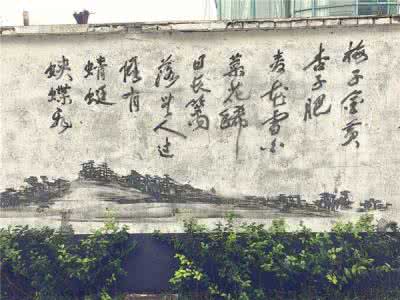 梅子金黄
杏子肥
麦花雪白
菜花稀
日长篱
落无人过
惟有
蜻蜓
蛱蝶飞